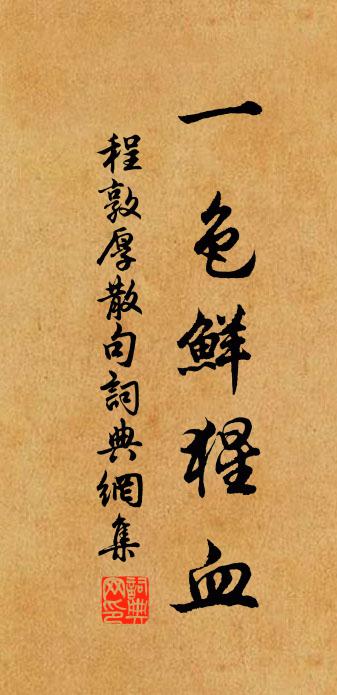 一色鮮猩血
程敦厚散句詞典網集
詞典網印